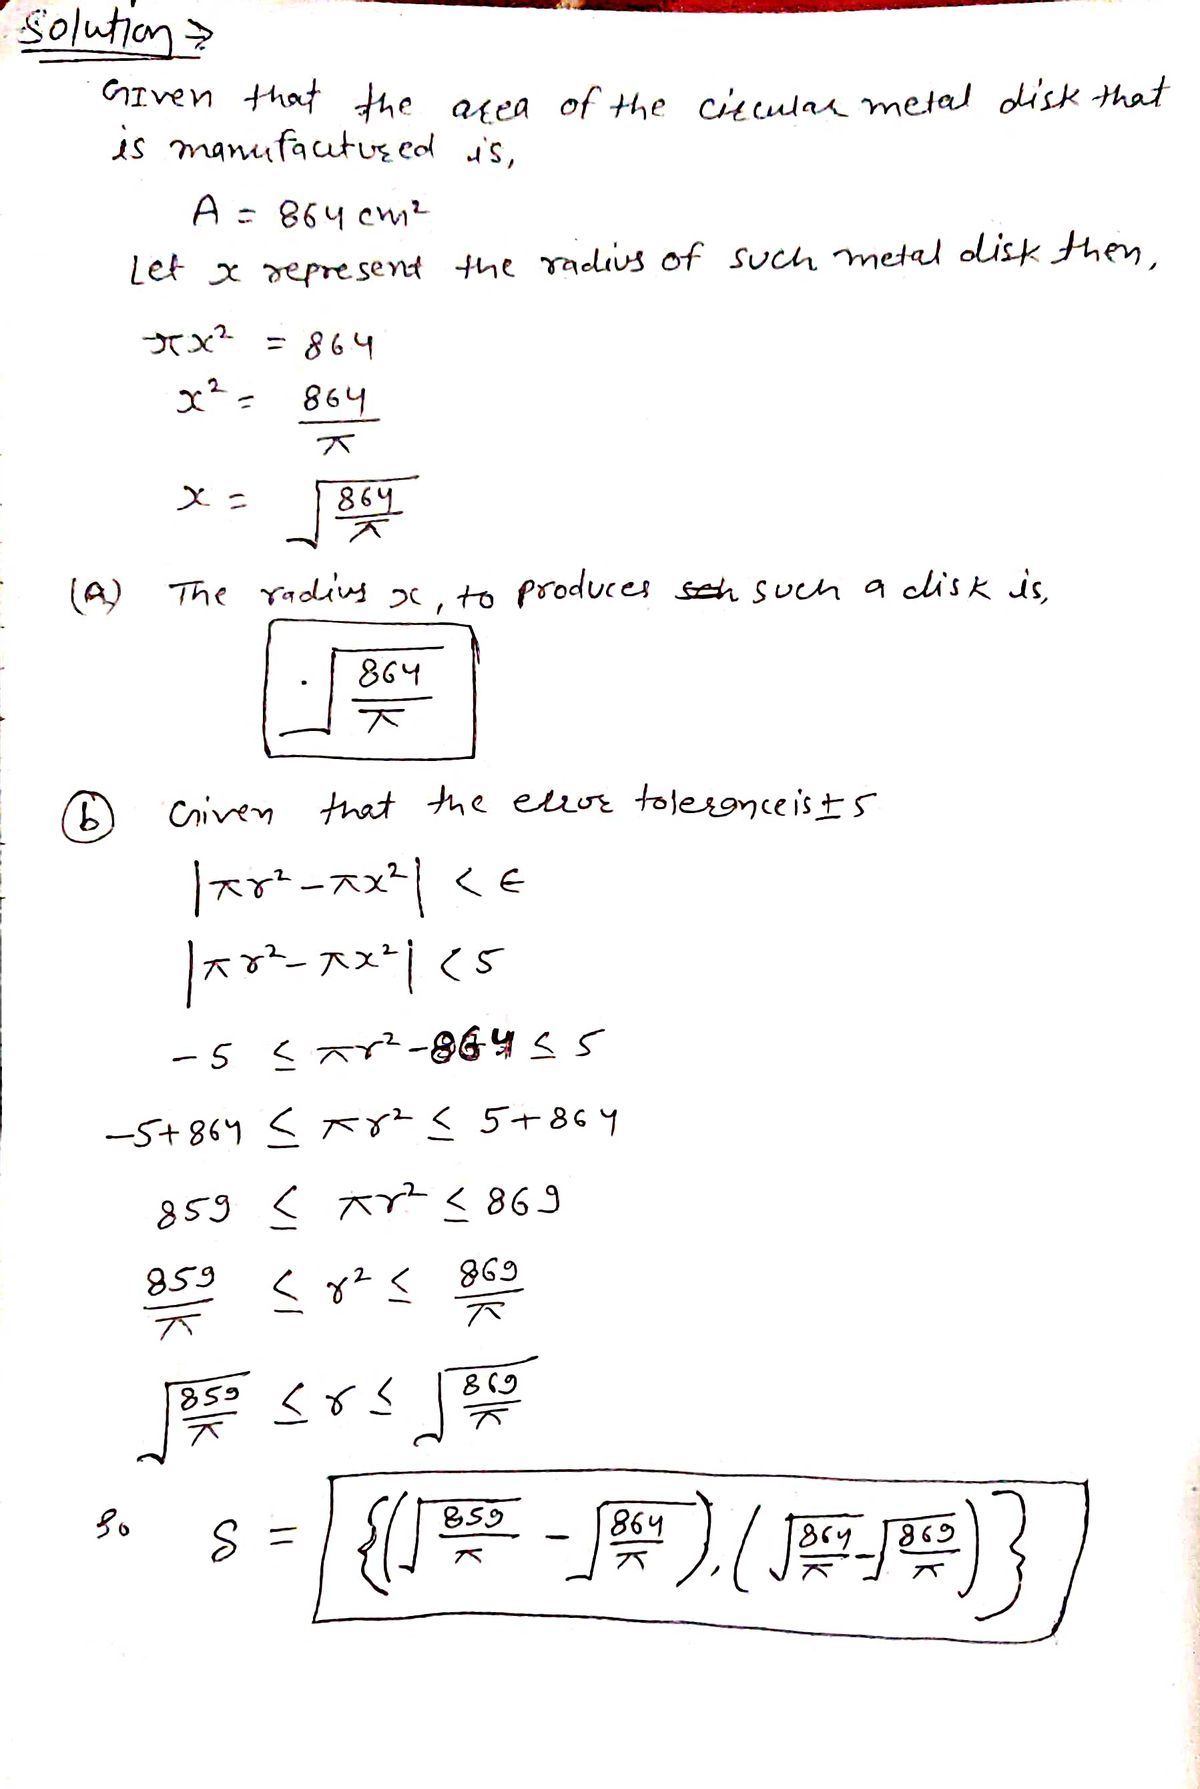 Solution ⇒
Given that the area of the circular metal disk that
is manufacutured is,
A = 864 cm²
Let x represent the radius of such metal disk then,
πx² = 864
x² = 864/π
x = √(864/π)
(A) The radius x, to produces such a disk is,
. √(864/π)
(b) Given that the error toleranceis ± 5
|πr² - πx²| < ∈
|πr² - πx²| < 5
-5 ≤ πr² - 864 ≤ 5
-5+864 ≤ πr² ≤ 5+864
859 ≤ πr² ≤ 869
859/π ≤ r² ≤ 869/π
√(859/π) ≤ r ≤ √(869/π)
So S = {(√(859/π) - √(864/π)), (√(864/π) - √(869/π))}